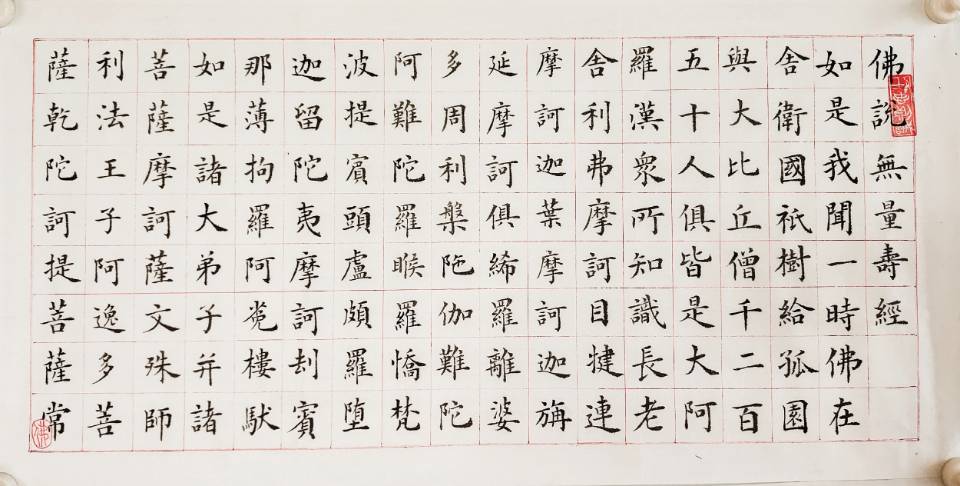 佛說無量壽經
如是我聞一時佛在
舍衛國祇樹給孤園
與大比丘僧千二百
五十人俱皆是大阿
羅漢衆所知識長老
舍利弗摩訶目犍連
摩訶迦葉摩訶迦旃
延摩訶俱絺羅離婆
多周利槃陁伽難陀
阿難陀羅睺羅憍梵
波提賓頭盧頗羅堕
迦留陀夷摩訶刦賓
那薄拘羅阿㝹樓馱
如是諸大弟子并諸
菩薩摩訶薩文殊師
利法王子阿逸多菩
薩乾陀訶提菩薩常